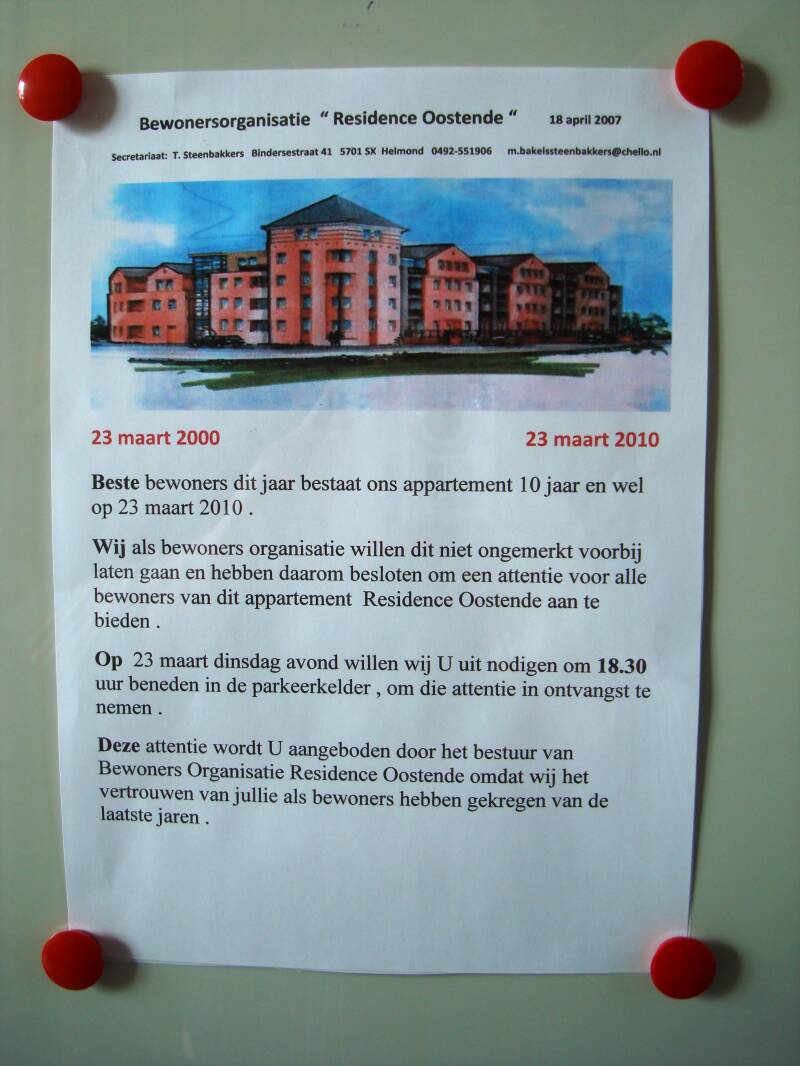 Bewonersorganisatie “ Residence Oostende “ 18 april 2007
Secretariaat: T. Steenbakkers Bindersestraat 41 5701 SX Helmond 0492-551906 m.bakelssteenbakkers@chello.nl
23 maart 2000 23 maart 2010
Beste bewoners dit jaar bestaat ons appartement 10 jaar en wel
op 23 maart 2010 .
Wij als bewoners organisatie willen dit niet ongemerkt voorbij
laten gaan en hebben daarom besloten om een attentie voor alle
bewoners van dit appartement Residence Oostende aan te
bieden .
Op 23 maart dinsdag avond willen wij U uit nodigen om 18.30
uur beneden in de parkeerkelder , om die attentie in ontvangst te
nemen .
Deze attentie wordt U aangeboden door het bestuur van
Bewoners Organisatie Residence Oostende omdat wij het
vertrouwen van jullie als bewoners hebben gekregen van de
laatste jaren .